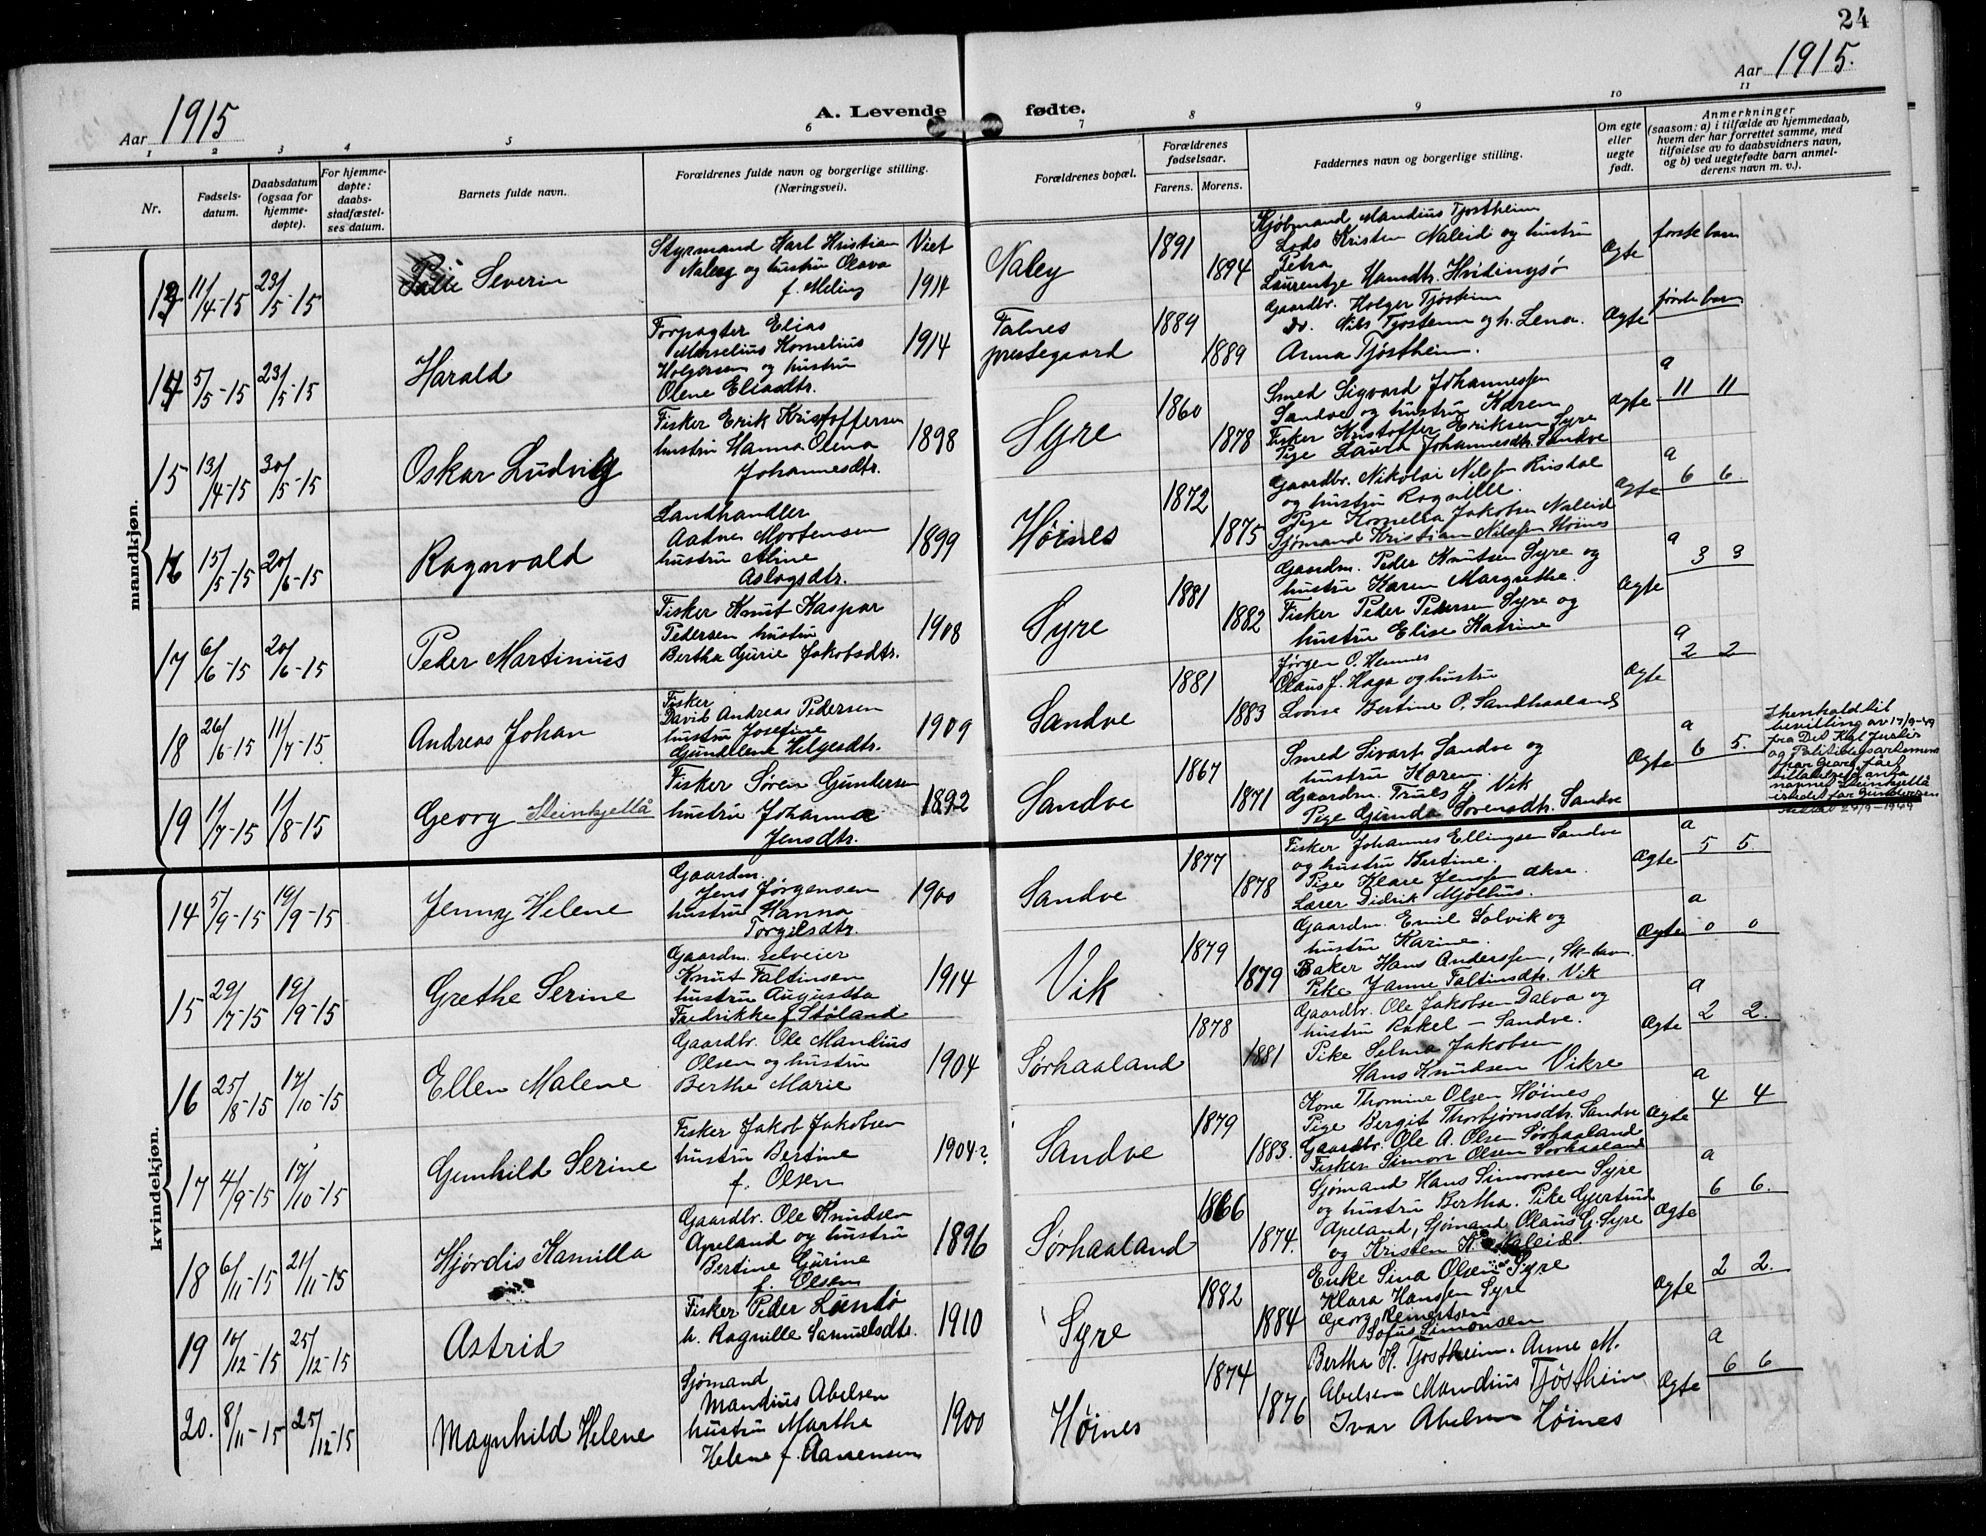 24
Aar 1915
A. Levende fødte.
Aar 1915.
1 2 3 4 5 6 7 8 9 10 11
Nr.
Fødsels-
datum.
Daabsdatum
(ogsaa for
hjemme-
døpte).
For hjemme-
døpte:
daabs-
stadfæstel-
ses datum.
Barnets fulde navn.
Forældrenes fulde navn og borgerlige stilling.
(Næringsvei).
Forældrenes bopæl.
Forældrenes
fødselsaar.
Farens. Morens.
Faddernes navn og borgerlige stilling.
Om egte
eller
uegte
født.
Anmerkninger
(saasom: a) i tilfælde av hjemmedaab,
hvem der har forrettet samme, med
tilføielse av to daabsvidners navn,
og b) ved uegtefødte barn anmel-
derens navn m. v.).
mandkjøn.
13 11/4-15 23/5-15 Severin
Styrmand Karl Kristian
Naley og hustru Olava
f. Meling
Viet
1914
Naley 1891 1894
Kjøbmand Mandius Tjostheim
Lods Kristen Naleid og hustru
Petra
Laurentze Hansdtr. Hvidingsø
Ægte første barn
14 5/5-15 23/5-15 Harald
Forpagter Elias
Marselius Kornelius
Holgersen og hustru
Olene Eliasdtr.
1914
Falnes
prestegaard 1889 1889
Gaardbr. Holger Tjøstheim
Do. Nils Tjostem og h. Lena.
Anna Tjøstheim.
Ægte første barn
15 13/4-15 30/5-15 Oskar Ludvig
Fisker Erik Kristoffersen
hustru Hanna Olena
Johannesdtr.
1898
Syre 1860 1878
Smed Sigvard Johannessen
Sandve og hustru Karen
Fisker Kristoffer Eriksen Syre
Pige Laura Johannesdtr. Sandve
Ægte a 11 11
16 15/5-15 20/6-15 Ragnvald
Landhandler
Aadne Mortensen
hustru Aline
Aslagsdtr.
1899
Høines 1872 1875
Gaardbr. Nikolai Nilssen
og hustru Ragnille.
Pige Kornelia Jakobsen Naleid
Sjømand Kristian Nilssen Høines
Ægte a 6 6
17 6/6-15 20/6-15 Peder Martinius
Fisker Knut Kaspar
Pedersen hustru
Bertha Gurie Jakobsdtr.
1908
Syre 1881 1882
Gaardm. Peder Knutsen Syre og
hustru Karen Margrethe.
Fisker Peder Pedersen Syre og
hustru Elise Katrine
Ægte a 3 3
18 26/6-15 11/7-15. Andreas Johan
Fisker
David Andreas Pedersen
hustru Josefine
Gundelene Helgesdtr.
1909
Sandve 1881 1883
Jørgen O. Hemnes
Olaus J. Haga og hustru
Lovise Bertine O. Sandhaaland
Ægte a 2 2
19 1/7-15 1/8-15 Georg Steinkjellå
Fisker Søren Gundersen
hustru Johanna
Jensdtr.
1892
Sandve 1867 1871
Smed Sivart Sandve og
hustru Karen.
Gaardm. Truls G. Vik
Pige Gunda Sørensdtr. Sandve
Ægte a 6 5.
I henhold til
bevilling av 17/9-49
fra Det Kgl Justis
og
har Georg fået
tillatelse til å anta
navnet Steinkjellå
istedet for Gundersen
kvindekjøn.
14 5/9-15 19/9-15 Jenny Helene
Gaardm.
Jens Jørgensen
hustru Hanna
Torgilsdtr.
1900
Sandve 1877 1878
Fisker Johannes Ellingsen Sandve
og hustru Bertine.
Pige Klare Jenssen Akse
Lærer Didrik Mjølhus.
Ægte a 5 5.
15 29/7-15 19/9-15 Grethe Serine
Gaardm. Selveier
Knut Faltinsen
hustru Augusta
Fredrikke f. Støland
1914
Vik 1879 1879
Gaardm. Emil Solvik og
hustru Karine.
Baker Hans Anderssen, Sk-havn
Pike Janne Faltinsdtr. Vik
Ægte a 0 0
16 25/8-15 17/10-15 Ellen Malene
Gaardbr. Ole Mandius
Olsen og hustru
Berthe Marie
1904
Sørhaaland 1878 1881
Gaardbr. Ole Jakobsen Dalva og
hustru Rakel - Sandve.
Pike Selma Jakobsen
Hans Knudsen Vikre
Ægte a 2 2.
17 4/9-15 17/10-15 Gunhild Serine
Fisker Jakob Jakobsen
hustru Bertine
f. Olsen
1904?
Sandve 1879 1883.
Kone Thomine Olsen Høines
Pige Bergit Thorbjørnsdtr. Sandve
Gaardbr. Ole A. Olsen Sørhaaland
Fisker Simon Olsen Sørhaaland
Ægte a 4 4
18 6/11-15 21/11-15 Hjørdis Kamilla
Gaardbr. Ole Knudsen
Apeland og hustru
Bertine Gurine
f. Olsen
1896
Sørhaaland 1866 1874.
Sjømand Hans Simonsen Syre
og hustru Bertha. Pike Gjertrud
Apeland, Sjømand Olaus G. Syre
og Kristen K. Naleid.
Ægte a 6 6.
19 10/12-15 25/12-15 Astrid
Fisker Peder Lundø
h. Ragnille Samuelsdtr.
1910
Syre 1882 1884
Enke Sina Olsen Syre
Klara Hanssen Syre
Georg Reinertsen
Sofus Simonsen
Ægte 2 2.
20. 8/11-15 25/12-15 Magnhild Helene
Sjømand
Mandius Abelsen
hustru Martha
Helene f. Aanensen
1900
Høines 1874 1876
Bertha K. Tjostheim. Anne M.
Abelsen Mandius Tjøstheim
Ivar Abelsen Høines
Ægte a 6 6